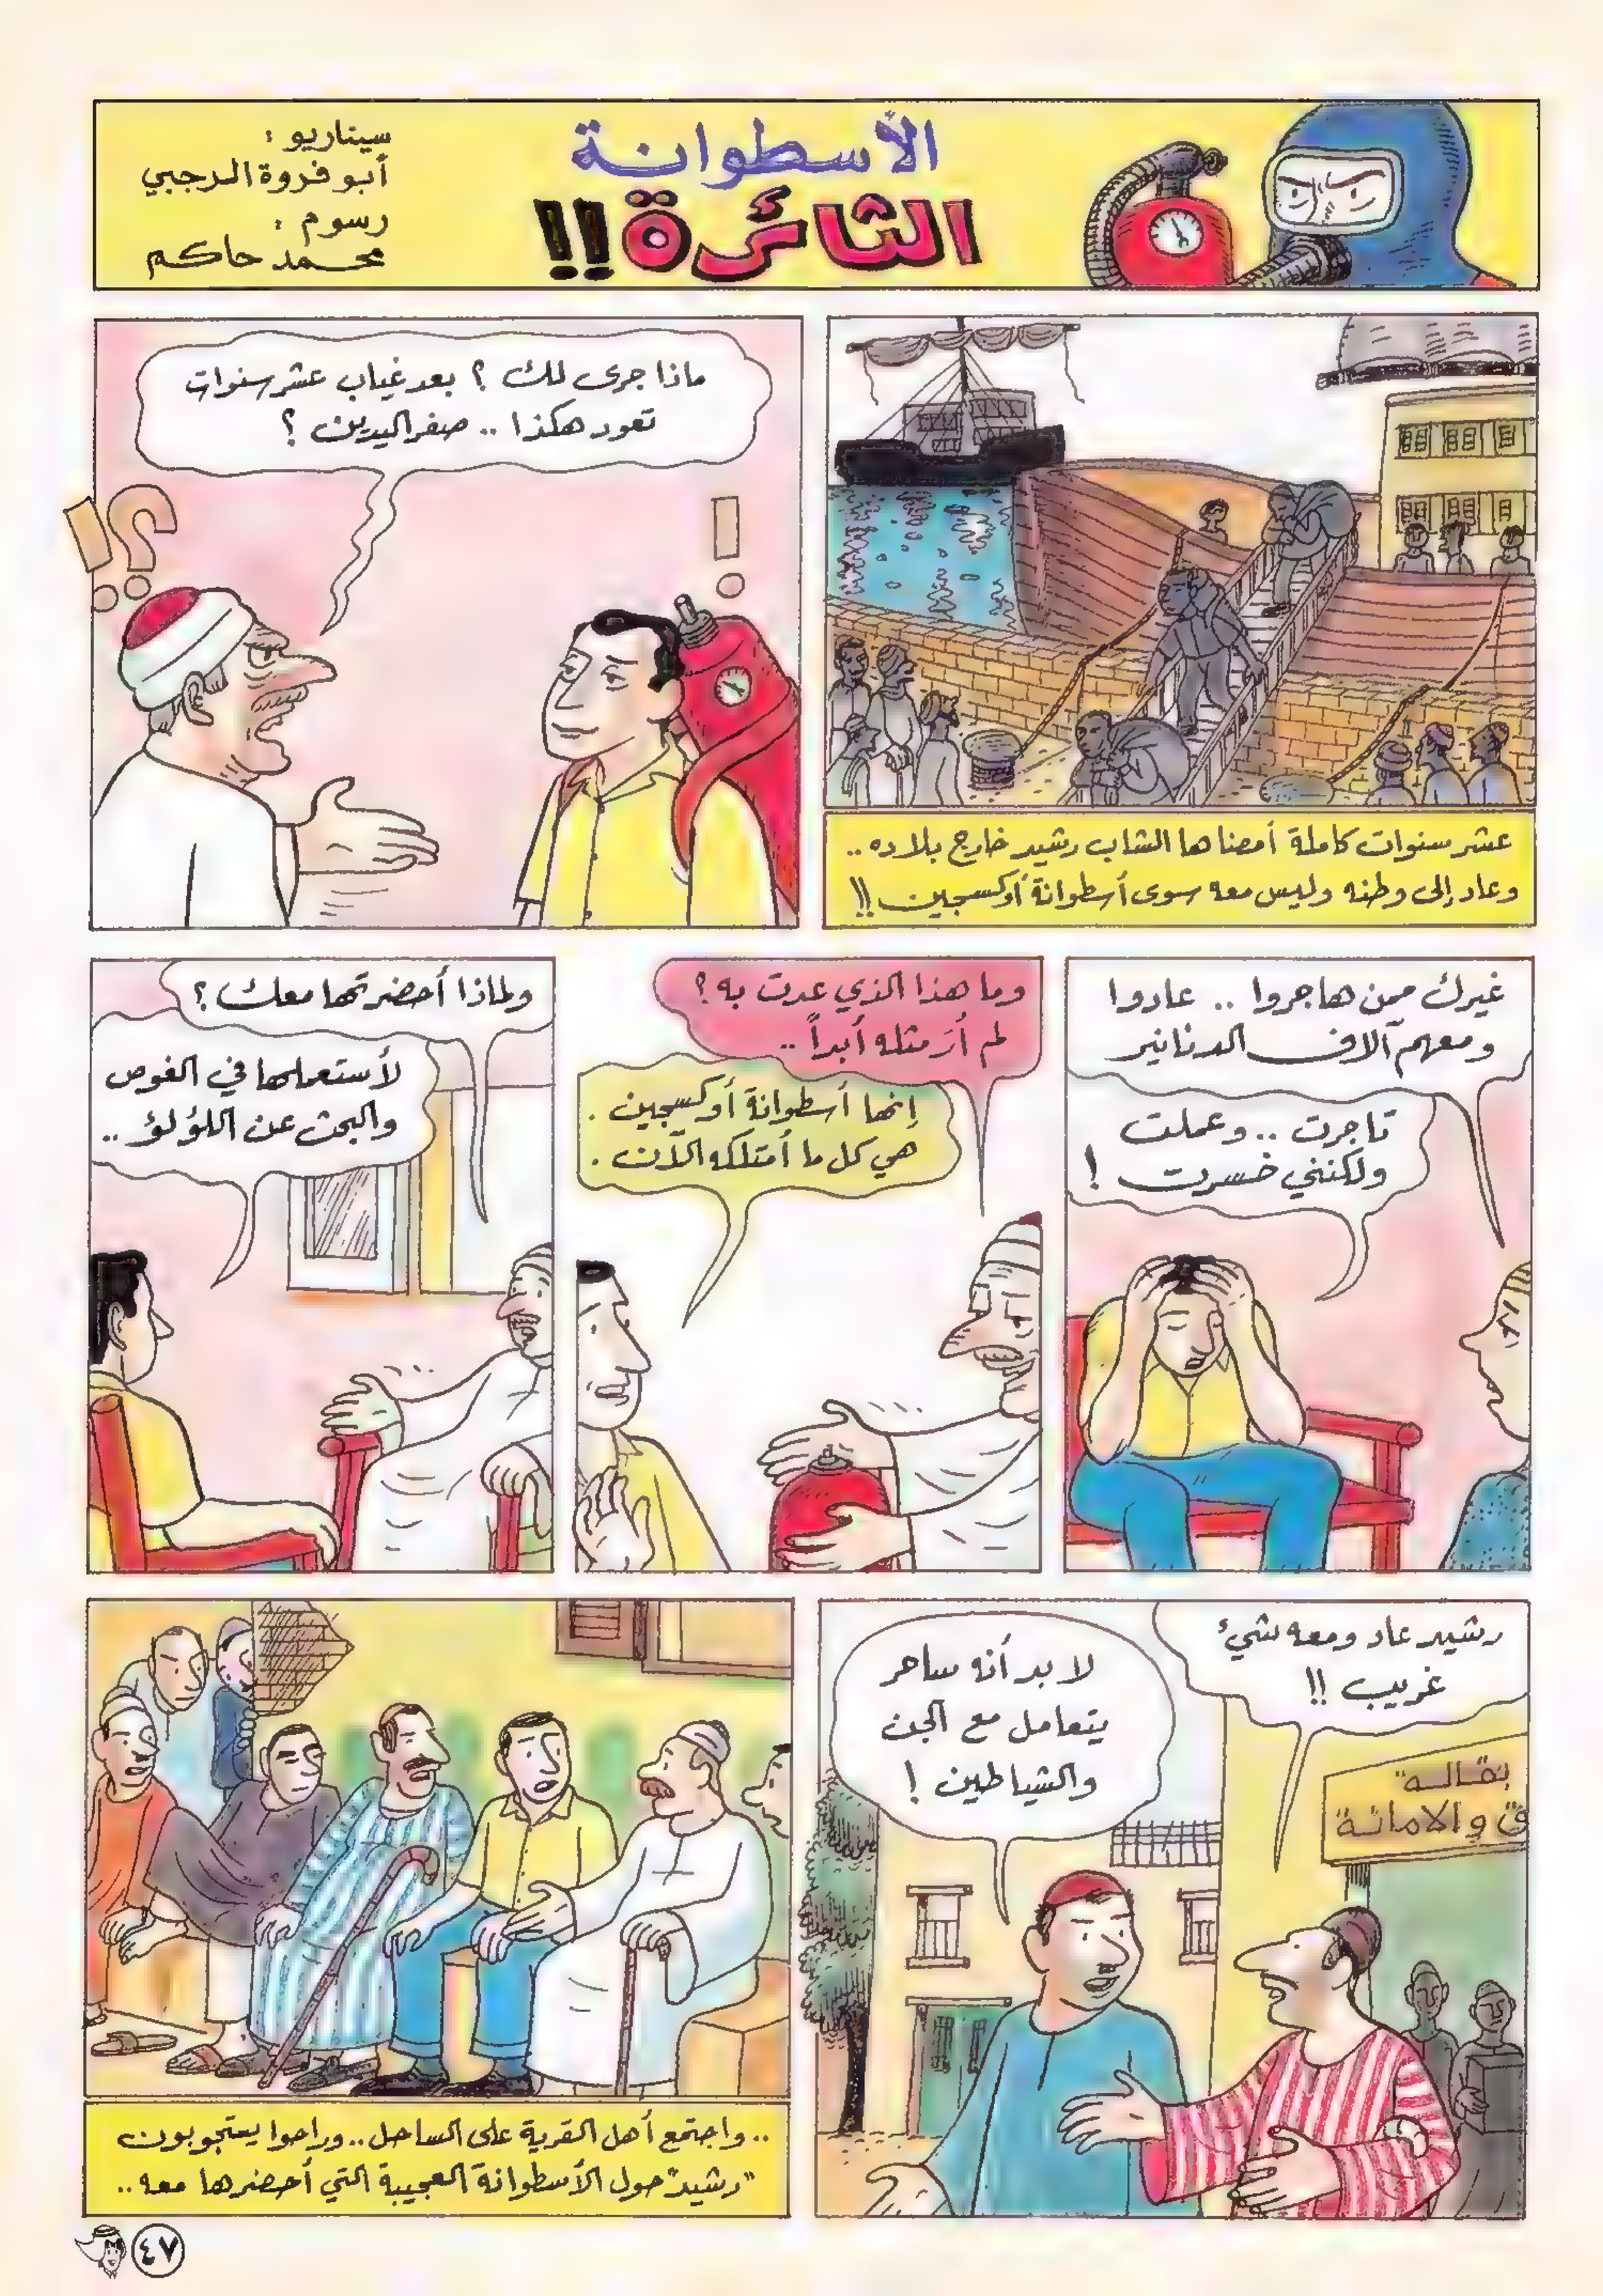 الأسطوانة
الثائرة!!
سيناريو :
أبو فروة الرجبي
رسوم :
محمد حاكم
عشر سنوات كاملة أمضاها الشاب رشيد خارج بلاده ..
وعاد إلى وطنه وليس معه سوى أسطوانة أوكسجين !!
ماذا جرى لك ؟ بعد غياب عشر سنوات
تعود هكذا .. صفر اليدين ؟
!
؟!
غيرك ممن هاجروا .. عادوا
ومعهم آلاف الدنانير
تاجرت .. وعملت
ولكنني خسرت !
وما هذا الذي عدت به ؟
لم أرَ مثله أبداً ..
إنها أسطوانة أوكسجين .
هي كل ما أمتلكه الآن .
ولماذا أحضرتها معك ؟
لأستعملها في الغوص
والبحث عن اللؤلؤ ..
رشيد عاد ومعه شيء
غريب !!
لا بد أنه ساحر
يتعامل مع الجن
والشياطين !
بقالة
ق والامانة
.. واجتمع أهل القرية على الساحل .. وراحوا يستجوبون
"رشيد" حول الأسطوانة العجيبة التي أحضرها معه ..
٤٧